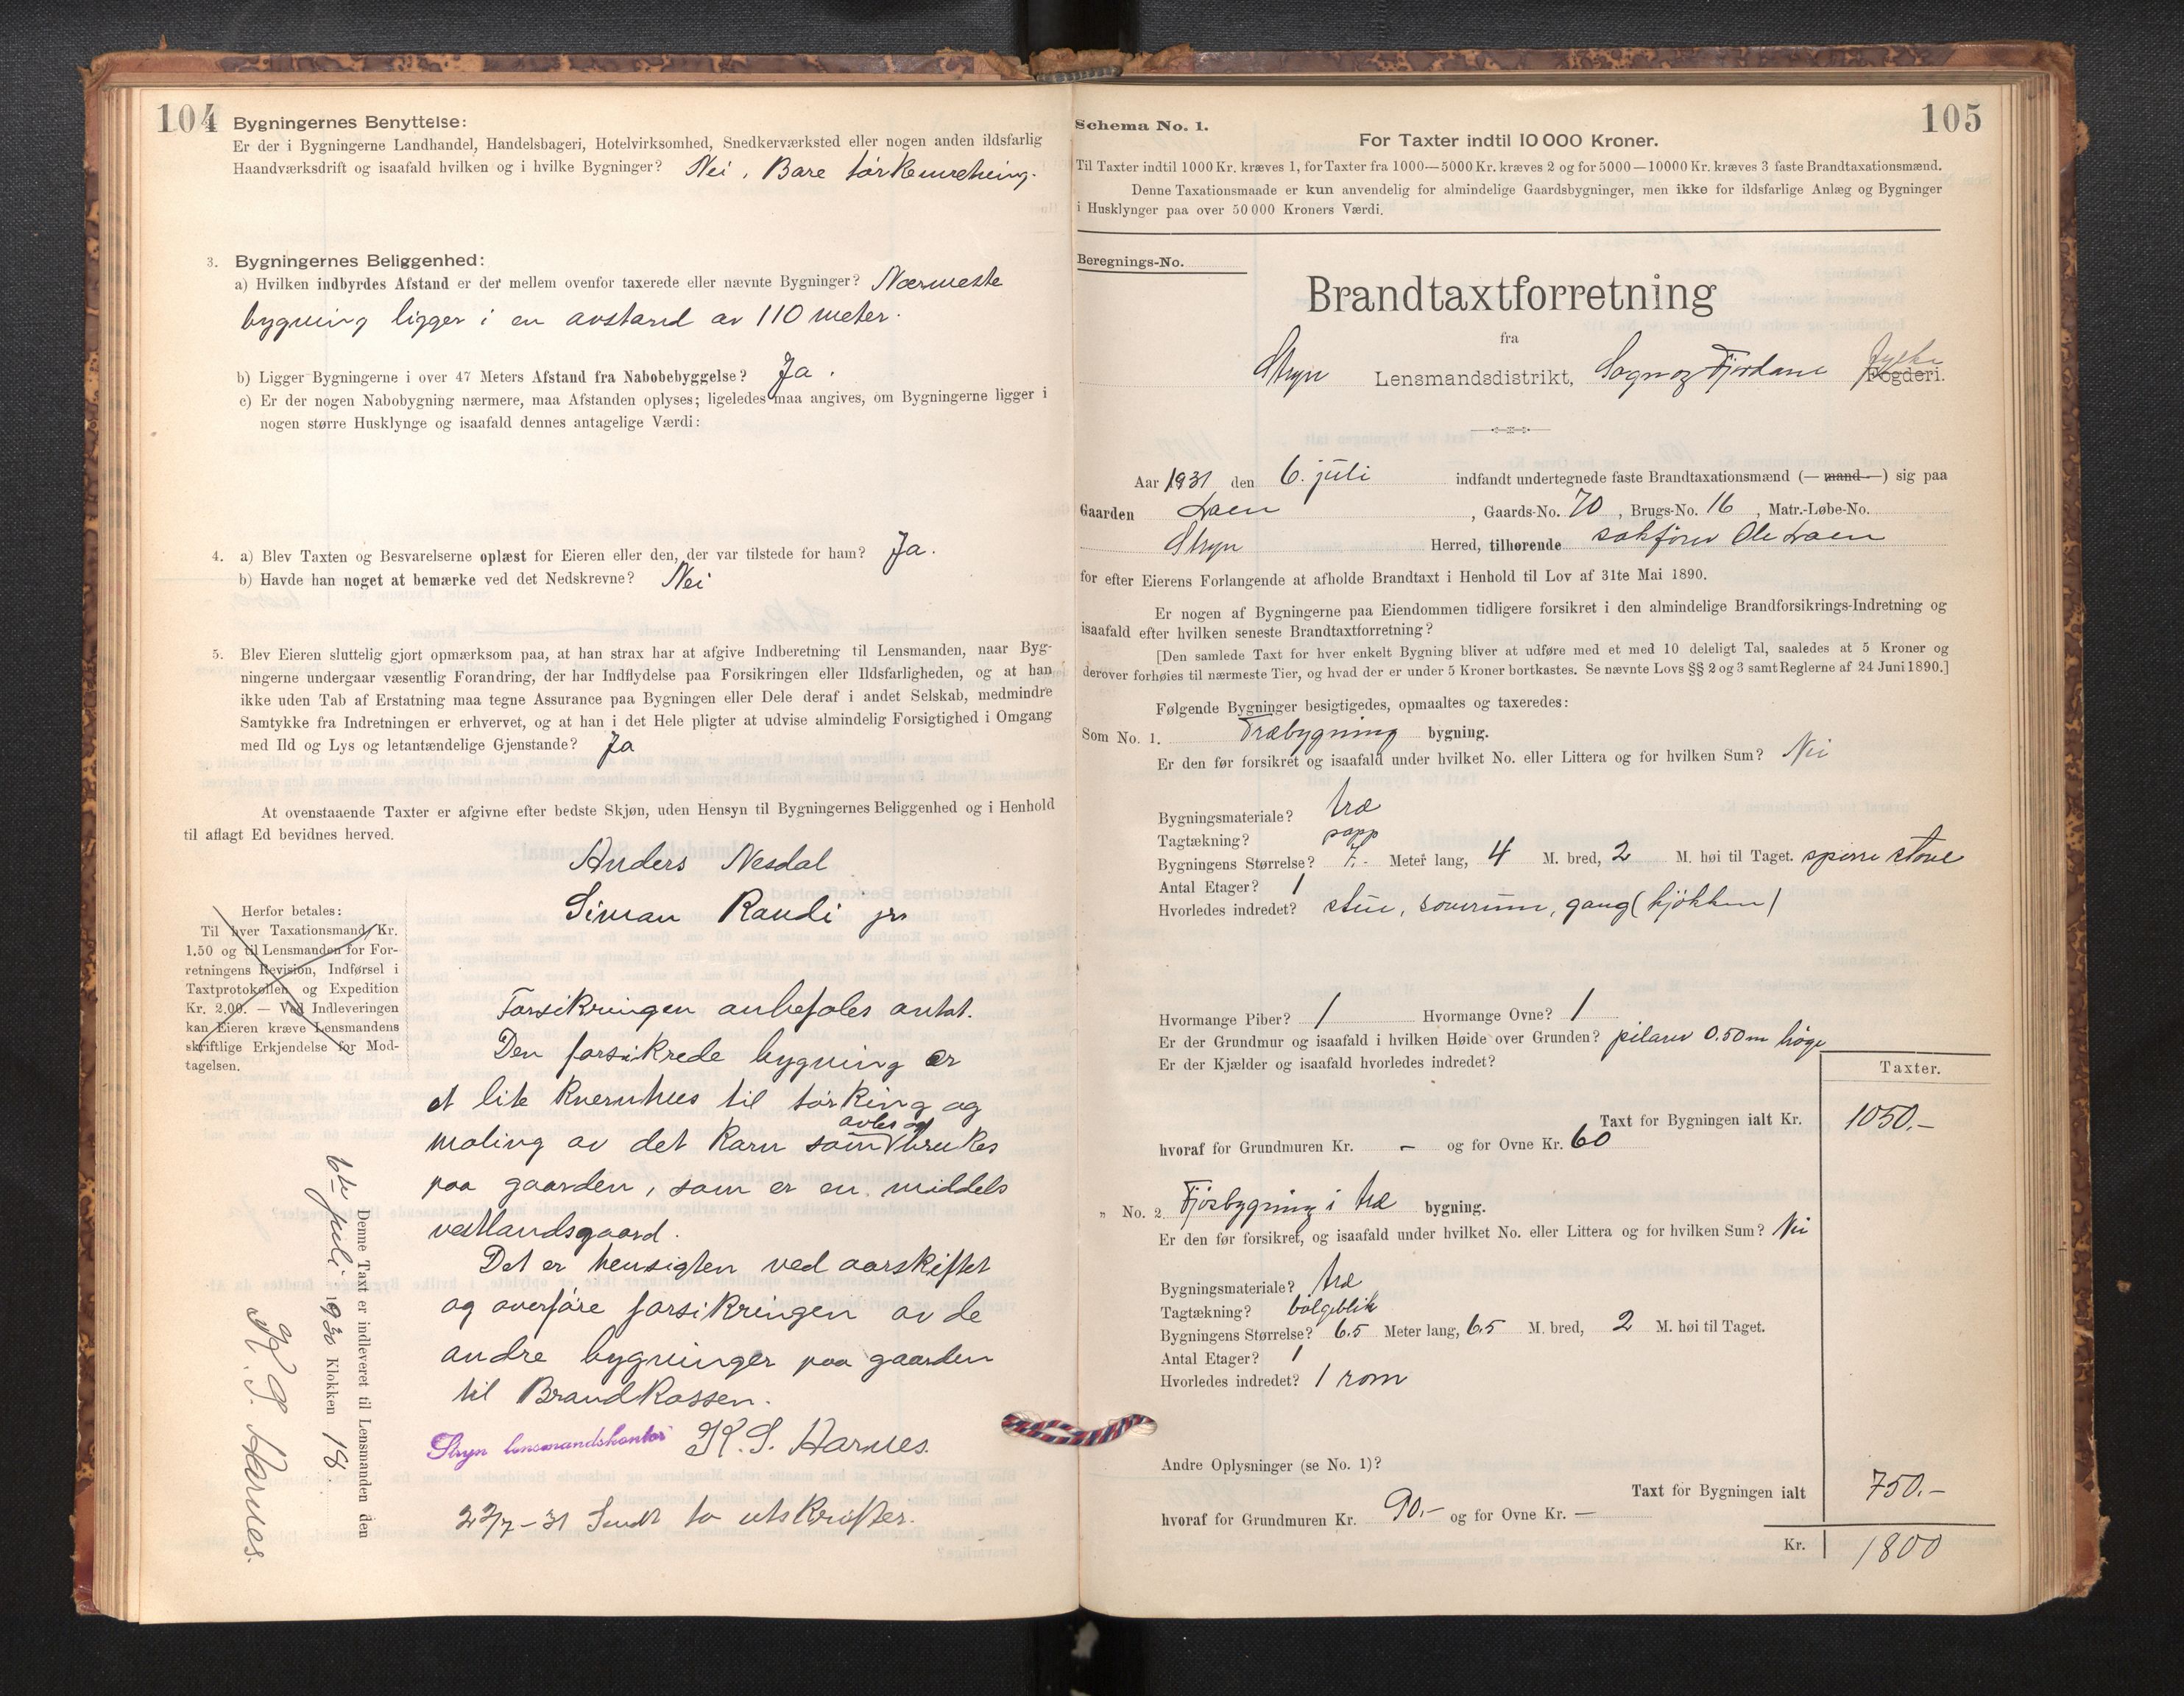 104
Bygningernes Benyttelse:
Er der i Bygningerne Landhandel, Handelsbageri, Hotelvirksomhed, Snedkerværksted eller nogen anden ildsfarlig
Haandværksdrift og isaafald hvilken og i hvilke Bygninger? Nei, Bare
3. Bygningernes Beliggenhed:
a) Hvilken indbyrdes Afstand er der mellem ovenfor taxerede eller nævnte Bygninger? Nærmeste
bygning ligger i en avstand av 110 meter.
b) Ligger Bygningerne i over 47 Meters Afstand fra Nabobebyggelse? Ja.
c) Er der nogen Nabobygning nærmere, maa Afstanden oplyses; ligeledes maa angives, om Bygningerne ligger i
nogen større Husklynge og isaafald dennes antagelige Værdi:
4. a) Blev Taxten og Besvarelserne oplæst for Eieren eller den, der var tilstede for ham? Ja.
b) Havde han noget at bemærke ved det Nedskrevne? Nei
5. Blev Eieren sluttelig gjort opmærksom paa, at han strax har at afgive Indberetning til Lensmanden, naar Byg-
ningerne undergaar væsentlig Forandring, der har Indflydelse paa Forsikringen eller Ildsfarligheden, og at han
ikke uden Tab af Erstatning maa tegne Assurance paa Bygningen eller Dele deraf i andet Selskab, medmindre
Samtykke fra Indretningen er erhvervet, og at han i det Hele pligter at udvise almindelig Forsigtighed i Omgang
med Ild og Lys og letantændelige Gjenstande? Ja
At ovenstaaende Taxter er afgivne efter bedste Skjøn, uden Hensyn til Bygningernes Beliggenhed og i Henhold
til aflagt Ed bevidnes herved.
Anders Nesdal
Simon Raudi jr
Herfor betales:
Til hver Taxationsmand Kr.
1.50 og til Lensmanden for For-
retningens Revision, Indførsel i
Taxtprotokollen og Expedition
Kr. 2.00. — Ved Indleveringen
kan Eieren kræve Lensmandens
skriftlige Erkjendelse for Mod-
tagelsen.
Forsikringen anbefales antat.
Den forsikrede bygning er
et lite kvernhus til tørking og
maling av det korn som avles og brukes
paa gaarden, som er en middels
vestlandsgaard.
Det er hensigten ved aarskiftet
og overføre forsikringen av de
andre bygninger paa gaarden
til Brandkassen.
Stryn lensmandskontor K. S. Aarnes.
22/7-31 Sendt to utskrifter.
Denne Taxt er indleveret til Lensmanden den
6te juli 1930 Klokken 18.
K. S. Aarnes.
105
Schema No. 1.
For Taxter indtil 10 000 Kroner.
Til Taxter indtil 1000 Kr. kræves 1, for Taxter fra 1000—5000 Kr. kræves 2 og for 5000—10000 Kr. kræves 3 faste Brandtaxationsmænd.
Denne Taxationsmaade er kun anvendelig for almindelige Gaardsbygninger, men ikke for ildsfarlige Anlæg og Bygninger
i Husklynger paa over 50 000 Kroners Værdi.
Beregnings-No.
Brandtaxtforretning
fra
Stryn Lensmandsdistrikt, Sogn og Fjordane Fylke Fogderi.
Aar 1931 den 6. juli indfandt undertegnede faste Brandtaxationsmænd (— mand —) sig paa
Gaarden Loen, Gaards-No. 70, Brugs-No. 16, Matr.-Løbe-No.
Stryn Herred, tilhørende sakfører Ole Loen
for efter Eierens Forlangende at afholde Brandtaxt i Henhold til Lov af 31te Mai 1890.
Er nogen af Bygningerne paa Eiendommen tidligere forsikret i den almindelige Brandforsikrings-Indretning og
isaafald efter hvilken seneste Brandtaxtforretning?
[Den samlede Taxt for hver enkelt Bygning bliver at udføre med et med 10 deleligt Tal, saaledes at 5 Kroner og
derover forhøies til nærmeste Tier, og hvad der er under 5 Kroner bortkastes. Se nævnte Lovs §§ 2 og 3 samt Reglerne af 24 Juni 1890.]
Følgende Bygninger besigtigedes, opmaaltes og taxeredes:
Som No. 1. Træbygning bygning.
Er den før forsikret og isaafald under hvilket No. eller Littera og for hvilken Sum? Nei
Bygningsmateriale? træ
Tagtækning? papp
Bygningens Størrelse? 7.- Meter lang, 4 M. bred, 2 M. høi til Taget. sperrestove
Antal Etager? 1
Hvorledes indredet? stue, soverum, gang (kjøkken)
Hvormange Piber? 1 Hvormange Ovne? 1
Er der Grundmur og isaafald i hvilken Høide over Grunden? pilarer 0.50 m høge
Er der Kjælder og isaafald hvorledes indredet?
Taxter.
Taxt for Bygningen ialt Kr. 1050.-
hvoraf for Grundmuren Kr. - og for Ovne Kr. 60
" No. 2. Fjøsbygning i træ bygning.
Er den før forsikret, og isaafald under hvilket No. eller Littera og for hvilken Sum? Nei
Bygningsmateriale? træ
Tagtækning? bølgeblik
Bygningens Størrelse? 6.5 Meter lang, 6.5 M. bred, 2 M. høi til Taget.
Antal Etager? 1
Hvorledes indredet? 1 rom
Andre Oplysninger (se No. 1)?
Taxt for Bygningen ialt 750.-
hvoraf for Grundmuren Kr. 90.- og for Ovne Kr. —
Kr. 1800